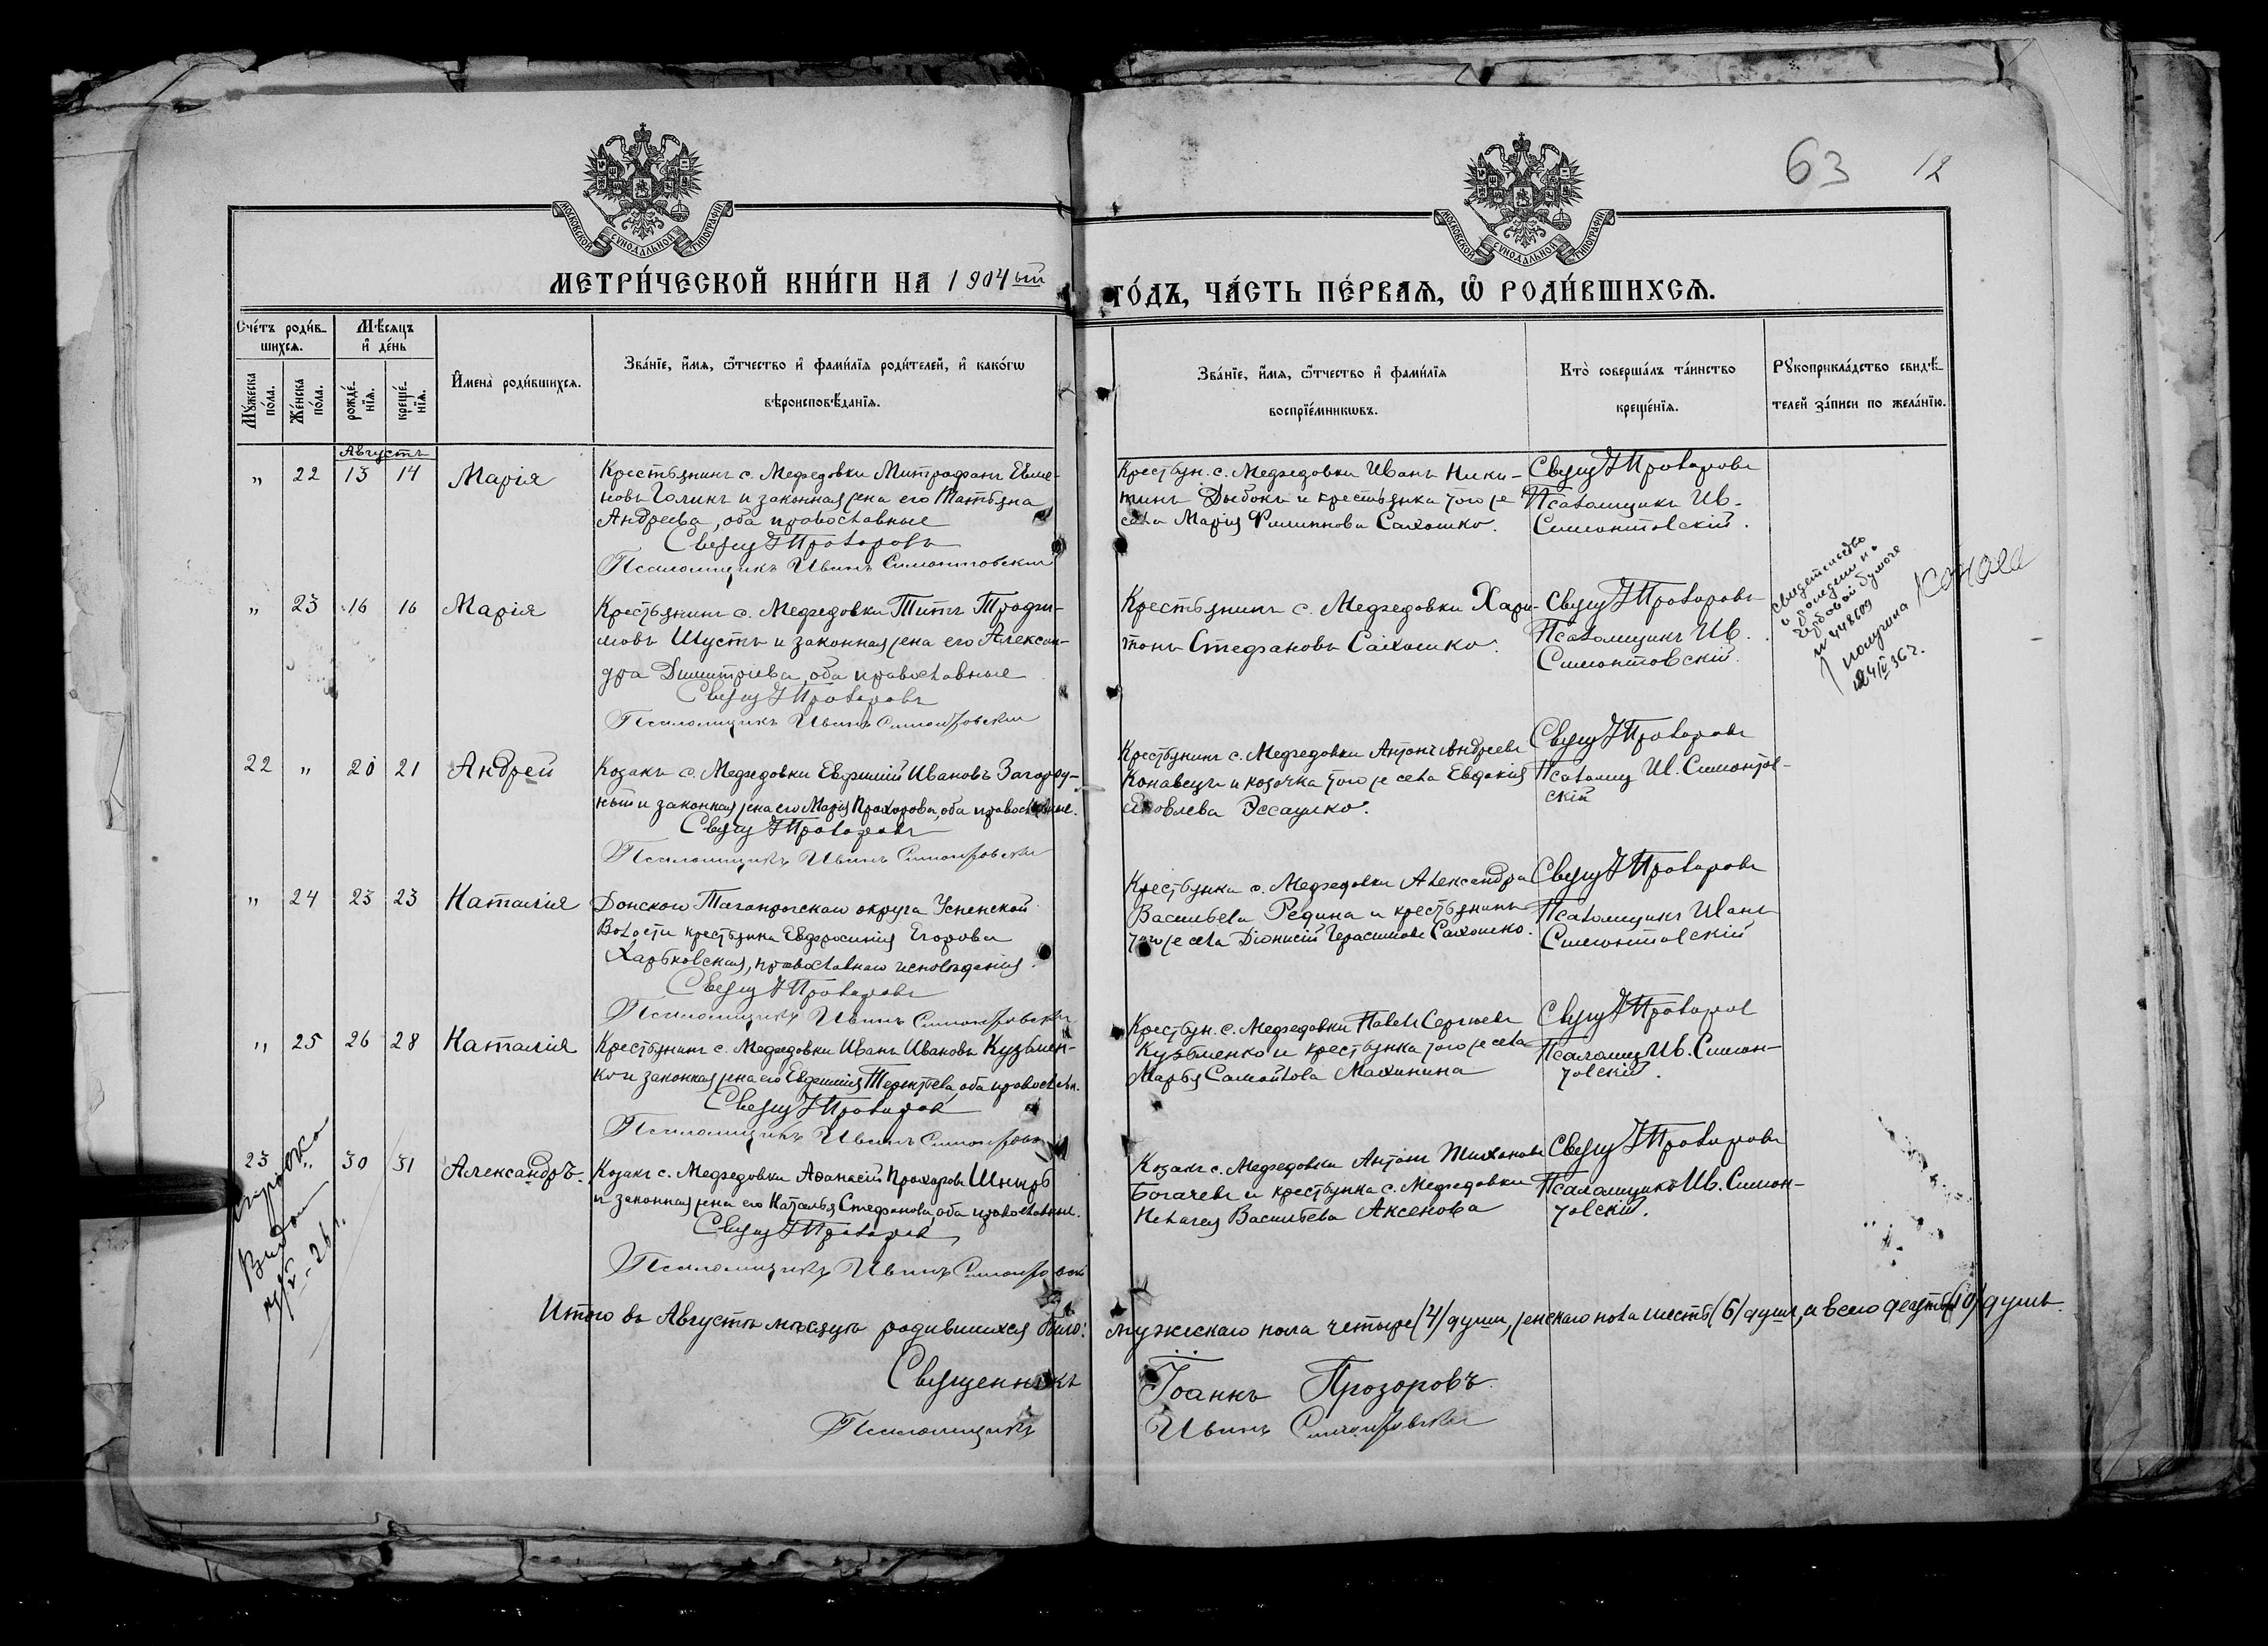 63 12
МОСКОВСКОЙ СѴНОДАЛЬНОЙ ТИПОГРАФІИ
МОСКОВСКОЙ СѴНОДАЛЬНОЙ ТИПОГРАФІИ
МЕТРИ́ЧЕСКОЙ КНИ́ГИ НА 1904ый
ГО́ДЪ, ЧА́СТЬ ПЕ́РВАЯ, Ѡ҆ РОДИ́ВШИХСЯ.
Сче́тъ роди́в-
шихся.
Мѣ́сяцъ
и҆ де́нь
Му́жеска
по́ла.
Же́нска
по́ла.
рожде́-
нїя.
креще́-
нїя.
И҆мена̀ роди́вшихся.
Зва́нїе, и҆́мя, ѻ҆́тчество и҆ фами́лїя роди́телей, и҆ како́гѡ
вѣроисповѣ́данїя.
Зва́нїе, и҆́мя, ѻ҆́тчество и҆ фами́лїя
воспрїе́мникѡвъ.
Кто̀ соверша́лъ та́инство
креще́нїя.
Рꙋкоприкла́дство свидѣ́-
телей за́писи по жела́нїю.
Августъ
" 22 13 14 Марія
Крестьянинъ с. Медведовки Митрофанъ
новъ Голикъ и законная жена его Татьяна
Андреева, оба православные
Свящ І Прозоровъ
Псаломщикъ Иванъ Симонтовскій
Крестьян. с. Медведовки Иванъ Ники-
тинъ и крестьянка того же
села Марія Филиппова Сахошко.
Свящ І Прозоровъ
Псаломщикъ Ив.
Симонтовскій.
" 23 16 16 Марія
Крестьянинъ с. Медведовки Титъ Трофи-
мовъ Шусть и законная жена его Алексан-
дра Димитріева, оба православные
Свящ І Прозоровъ
Псаломщикъ Иванъ Симонтовскій
Крестьянинъ с. Медведовки Хари-
тонъ Стефановъ Сахошко.
Свящ І Прозоровъ
Псаломщикъ Ив.
Симонтовскій.
свидетельство
гербовой бумаге
№ 448609
получила
24/IV 36 г.
22 " 20 21 Андрей
Козакъ с. Медведовки Евфимій Ивановъ Загород-
ный и законная жена его Марія Прохорова, оба православные.
Свящ І Прозоровъ
Псаломщикъ Иванъ Симонтовскій
Крестьянинъ с. Медведовки Антонъ Андреевъ
Конавецъ и козачка того же села Евдокія
Яковлева Эссаулко.
Свящ І Прозоровъ
Псаломщ Ив. Симонтов-
скій
" 24 23 23 Наталія
Донской Таганрогскаго округа Успенской
Волости крестьянка Евфросинія Егорова
Харьковская, православнаго исповеданія.
Свящ І Прозоровъ
Псаломщикъ Иванъ Симонтовскій
Крестьянка с. Медведовки Александра
Васильева Редина и крестьянинъ
того же села Діонисій Герасимовъ Сахошко.
Свящ І Прозоровъ
Псаломщикъ Иванъ
Симонтовскій
" 25 26 28 Наталія
Крестьянинъ с. Медведовки Иванъ Ивановъ Кузьмен-
ко и законная жена его Терентьева, оба православн.
Свящ І Прозоровъ
Псаломщикъ Иванъ Симонтовск
Крестьян. с. Медведовки Павелъ Сергіевъ
Кузьменко и крестьянка того же села
Марья Самойлова Махинина
Свящ І Прозоров
Псаломщ Ив. Симон-
товскій.
23 " 30 31 Александръ.
Козакъ с. Медведовки Аѳанасій Прохоровъ Шнырь
и законная жена его Наталья Стефанова, оба православные.
Свящ І Прозоров
Псаломщикъ Иванъ Симонтовскі
Козакъ с. Медведовки Антонъ Тихоновъ
Богачевъ и крестьянка с. Медведовки
Пелагея Васильева Аксенова
Свящ І Прозоровъ
Псаломщикъ Ив. Симон-
товскій.
Итого въ Августѣ мѣсяцѣ родившихся было: мужескаго пола четыре /4/ души, женскаго пола шесть /6/ душъ, а всего десять /10/ душъ.
Священникъ Іоаннъ Прозоровъ.
Псаломщикъ Иванъ Симонтовскій